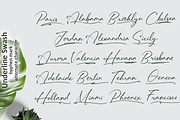 Underline Swash
hyphen mark +
alternate character
Paris Alabama Brooklyn Chelsea
Jordan Alexandria Sicily
Aurora Valencia Havana Brisbane
Adelaide Berlin Tehran Geneva
Holland Miami Phoenix Francisco